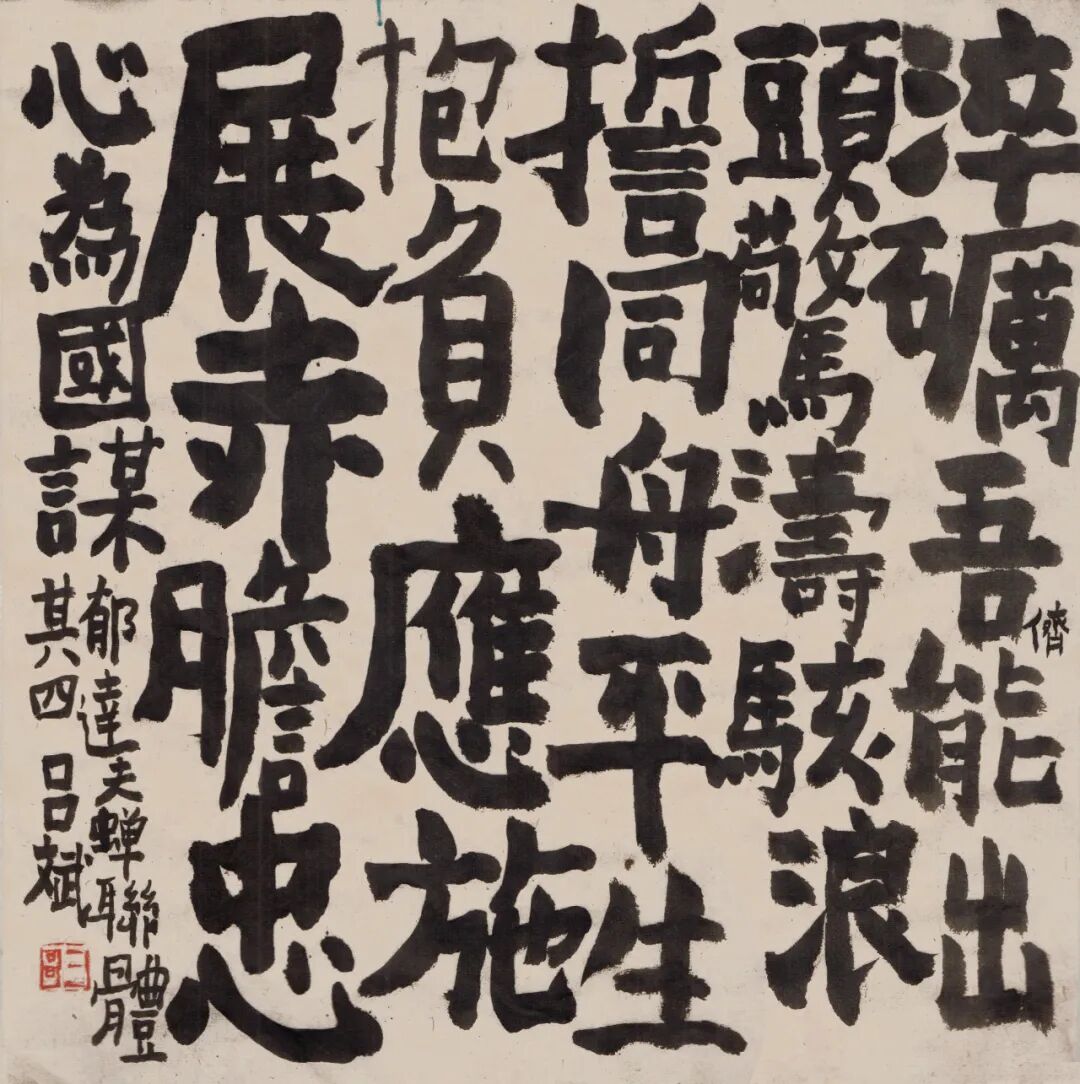 淬礪吾儕能出
頭驚濤駭浪
誓同舟平生
抱負應施
展赤膽忠
心為國謀
郁達夫蝉聯體
其四 呂斌